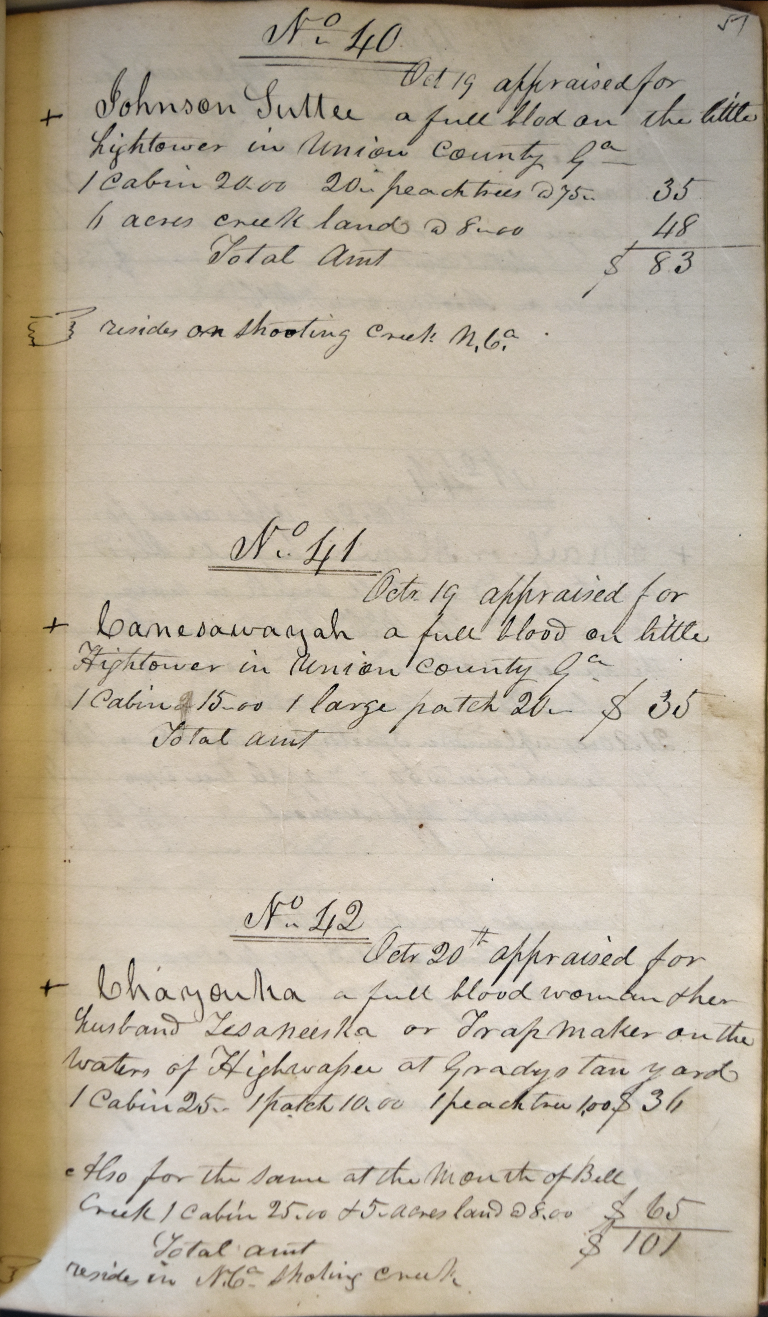 51
No 40
Oct 19 appraised for
+ Johnson Suttee a full blod on the little
hightower in Union County Ga
1 Cabin 20.00 20 peach trees @ 75 35
6 acres creek land @ 8.00 48
Total Amt $ 83
resides on Shooting Creek N. Ca.
No 41
Octr 19 appraised for
+ Canesawayah a full blood on little
Hightower in Union County Ga
1 Cabin @ 15.00 1 large patch 20 $ 35
Total amt
No 42
Octr 20th appraised for
+ Chayouka a full blood woman & her
husband Tesaneeska or Trap maker on the
waters of Highwasee at Gradys tan yard
1 Cabin 25 1 patch 10.00 1 peach tree 1.00 $ 36
Also for the same at the Mouth of Bell
Creek 1 Cabin 25.00 & 5 acres land @ 8.00 $ 65
Total amt $ 101
resides in N. Ca Shoting Creek